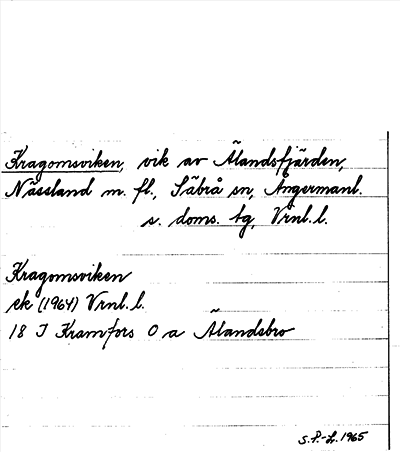 Kragomsviken, vik av Älandsfjärden,
Nässland m. fl., Säbrå sn, Ångermanl.
s. doms. tg, Vrnl. l.
Kragomsviken
ek (1964) Vrnl. l.
18 I Kramfors O a Älandsbro
S.P.-L. 1965